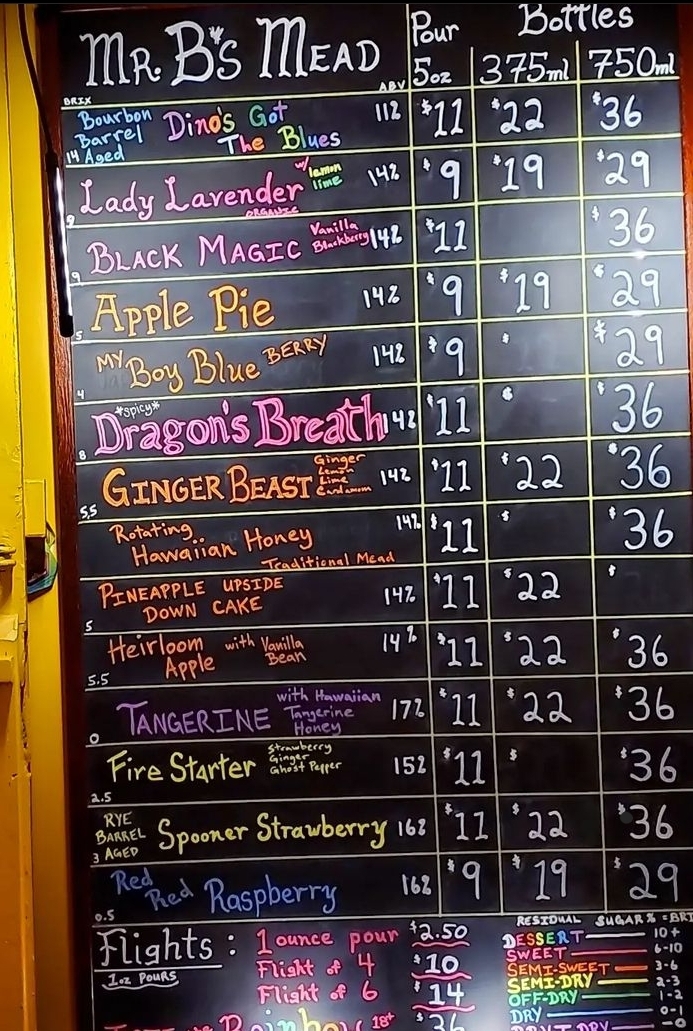 MR. B'S MEAD Pour Bottles
ABV 5oz 375ml 750ml
BRIX
Bourbon Barrel Aged Dino's Got The Blues 11% $11 $22 $36
14
Lady Lavender w/ lemon lime 14% $9 $19 $29
ORGANIC
9
BLACK MAGIC Vanilla Blackberry 14% $11 $36
9
Apple Pie 14% $9 $19 $29
5
MY Boy Blue BERRY 14% $9 $ $29
4
*spicy*
Dragon's Breath 14% $11 $ $36
8
GINGER BEAST Ginger Lemon Lime Cardamom 14% $11 $22 $36
5.5
Rotating Hawaiian Honey 14% $11 $ $36
Traditional Mead
PINEAPPLE UPSIDE DOWN CAKE 14% $11 $22 $
5
Heirloom Apple with Vanilla Bean 14% $11 $22 $36
5.5
TANGERINE with Hawaiian Tangerine Honey 17% $11 $22 $36
0
Fire Starter Strawberry Ginger Ghost Pepper 15% $11 $ $36
2.5
RYE BARREL AGED Spooner Strawberry 16% $11 $22 $36
3
Red Red Raspberry 16% $9 $19 $29
0.5
Flights: 1 ounce pour $2.50
1oz POURS
Flight of 4 $10
Flight of 6 $14
18+ $36
RESIDUAL SUGAR % = BRI
DESSERT 10+
SWEET 6-10
SEMI-SWEET 3-6
SEMI-DRY 2-3
OFF-DRY 1-2
DRY 0-1